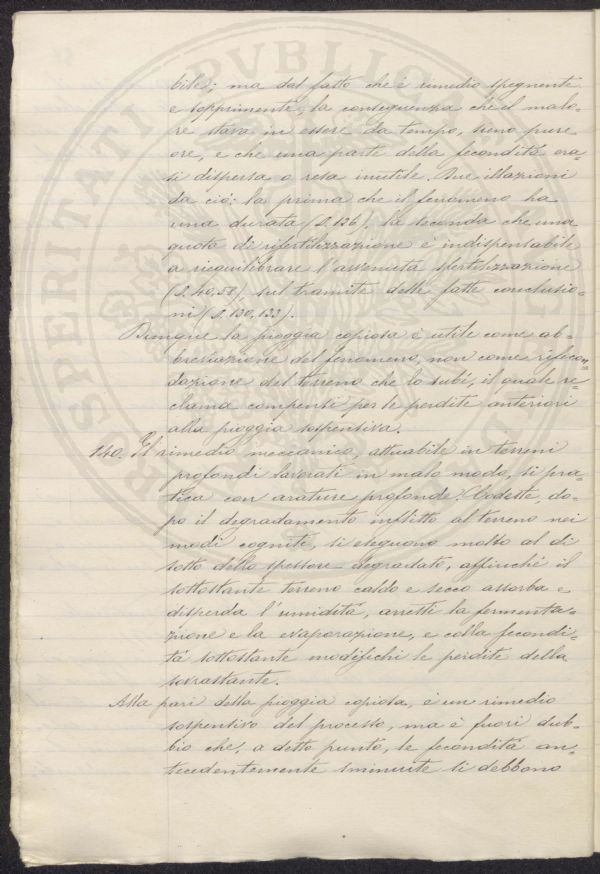 bile; ma dal fatto che è rimedio spegnente
e sopprimente, la conseguenza che il malo-
re stava in essere da tempo, sieno pure
ore, e che una parte della fecondità era-
si dispersa o resa inutile. Due illazioni
da ciò: la prima che il fenomeno ha
una durata (§.136), la seconda che una
quota di rifertilizzazione è indispensabile
a riequilibrare l'avvenuta sfertilizzazione
(§.40,58), sul tramite delle fatte conclusio-
ni (§.130,133).
Dunque la pioggia copiosa è utile come ab-
breviazione del fenomeno, non come rifecon-
dazione del terreno che lo subì, il quale re-
clama compensi per le perdite anteriori
alla pioggia sospensiva.
140. Il rimedio meccanico, attuabile in terreni
profondi lavorati in malo modo, si pra-
tica con arature profonde. Codeste, do-
po il degradamento inflitto al terreno nei
modi cogniti, si eseguono molto al di
sotto dello spessore degradato, affinché il
sottostante terreno caldo e secco assorba e
disperda l'umidità, arresti la fermenta-
zione e la evaporazione, e colla fecondi-
tà sottostante modifichi le perdite della
sovrastante.
Alla pari della pioggia copiosa, è un rimedio
sospensivo del processo, ma è fuori dub-
bio che, a detto punto, le fecondità an-
tecedentemente sminuite si debbono
PVBLIC
SPERITATI